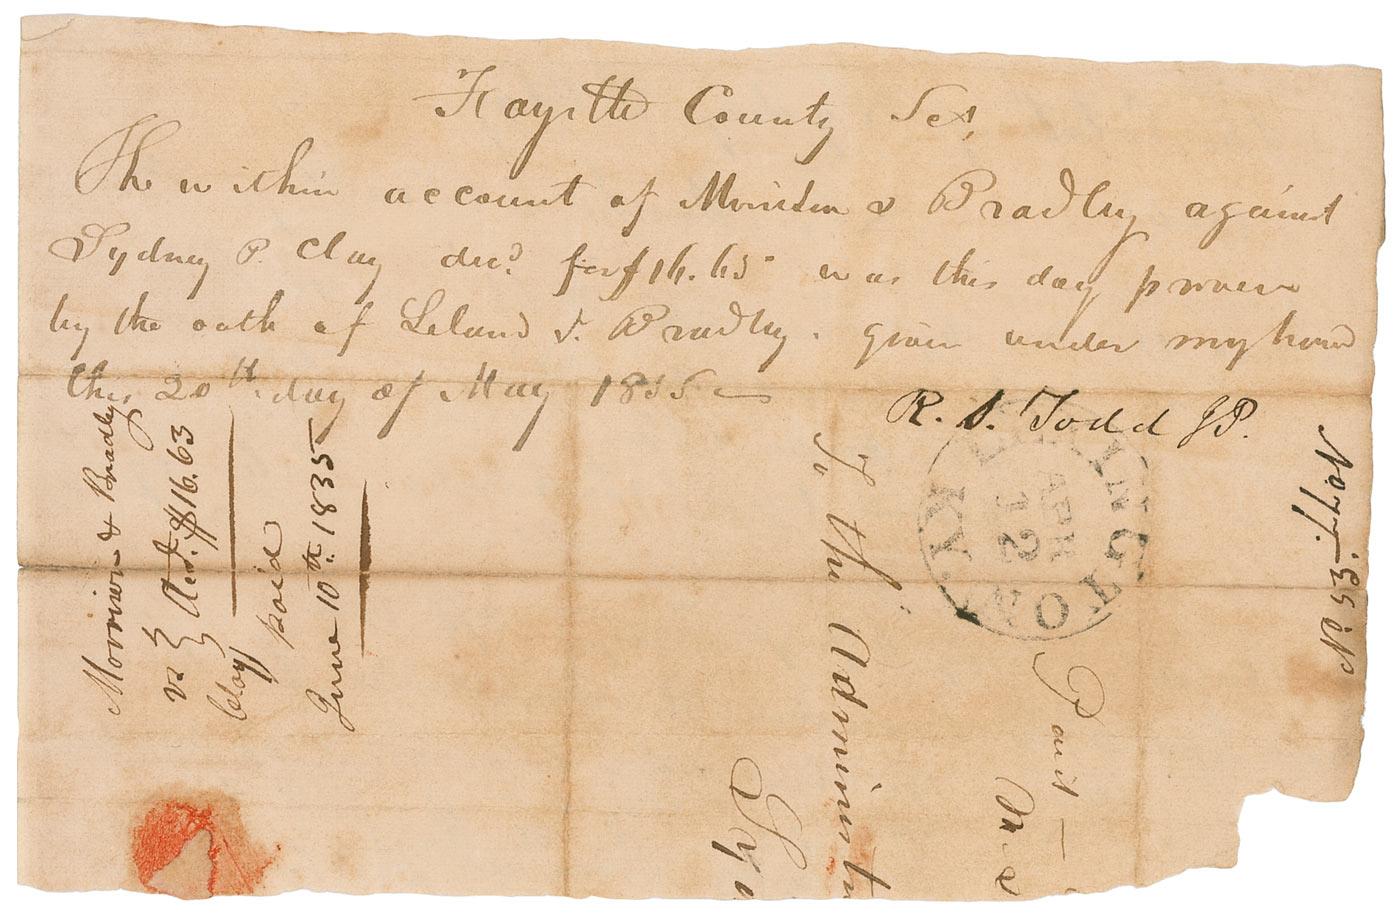 Fayette County Sct,
The within account of Morrison & Bradley against
Sydney P. Clay decd. for $16.63 was this day proven
by the oath of Leland J. Bradley. given under my hand
this 20th day of May 1835
R. S. Todd JP.
Morrison & Bradley
vs } Act. $16.63
Clay
paid
June 10th. 1835
LEXINGTON KY.
APR
12
To the Administ
Sy
Paid
No. 53.